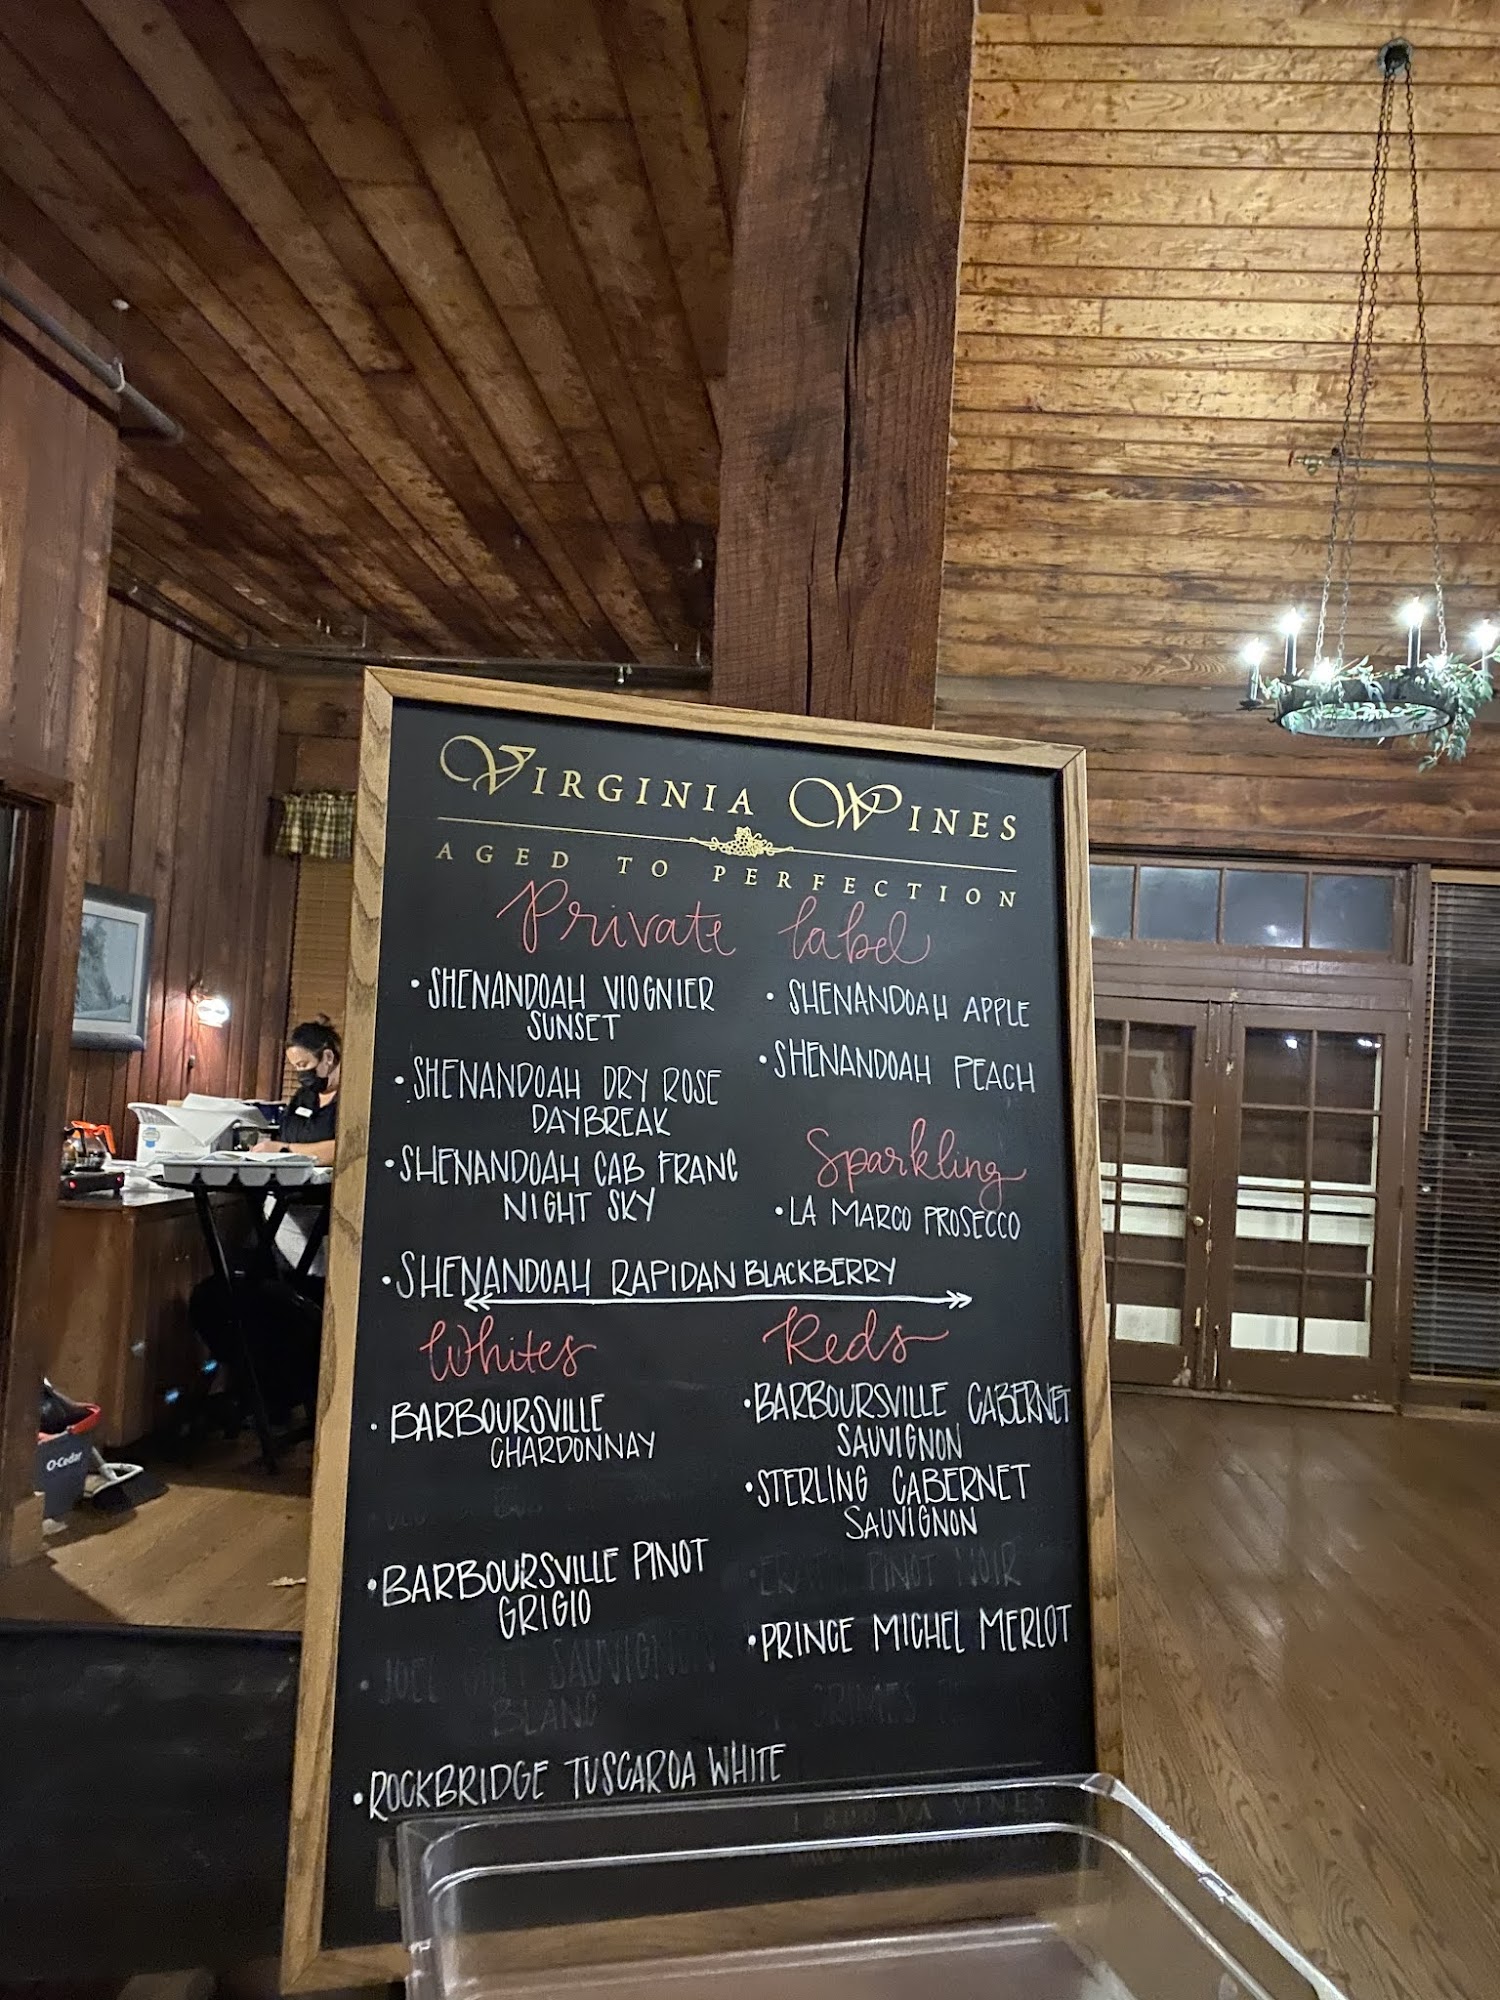 VIRGINIA WINES
AGED TO PERFECTION
Private label
• SHENANDOAH VIOGNIER
SUNSET
• SHENANDOAH DRY ROSE
DAYBREAK
• SHENANDOAH CAB FRANC
NIGHT SKY
• SHENANDOAH RAPIDAN BLACKBERRY
• SHENANDOAH APPLE
• SHENANDOAH PEACH
Sparkling
• LA MARCO PROSECCO
Whites
• BARBOURSVILLE
CHARDONNAY
• BARBOURSVILLE PINOT
GRIGIO
• JOEL SAUVIGNON
BLANC
• ROCKBRIDGE TUSCAROA WHITE
Reds
• BARBOURSVILLE CABERNET
SAUVIGNON
• STERLING CABERNET
SAUVIGNON
• PINOT NOIR
• PRINCE MICHEL MERLOT
1 800 VA VINES
O-Cedar